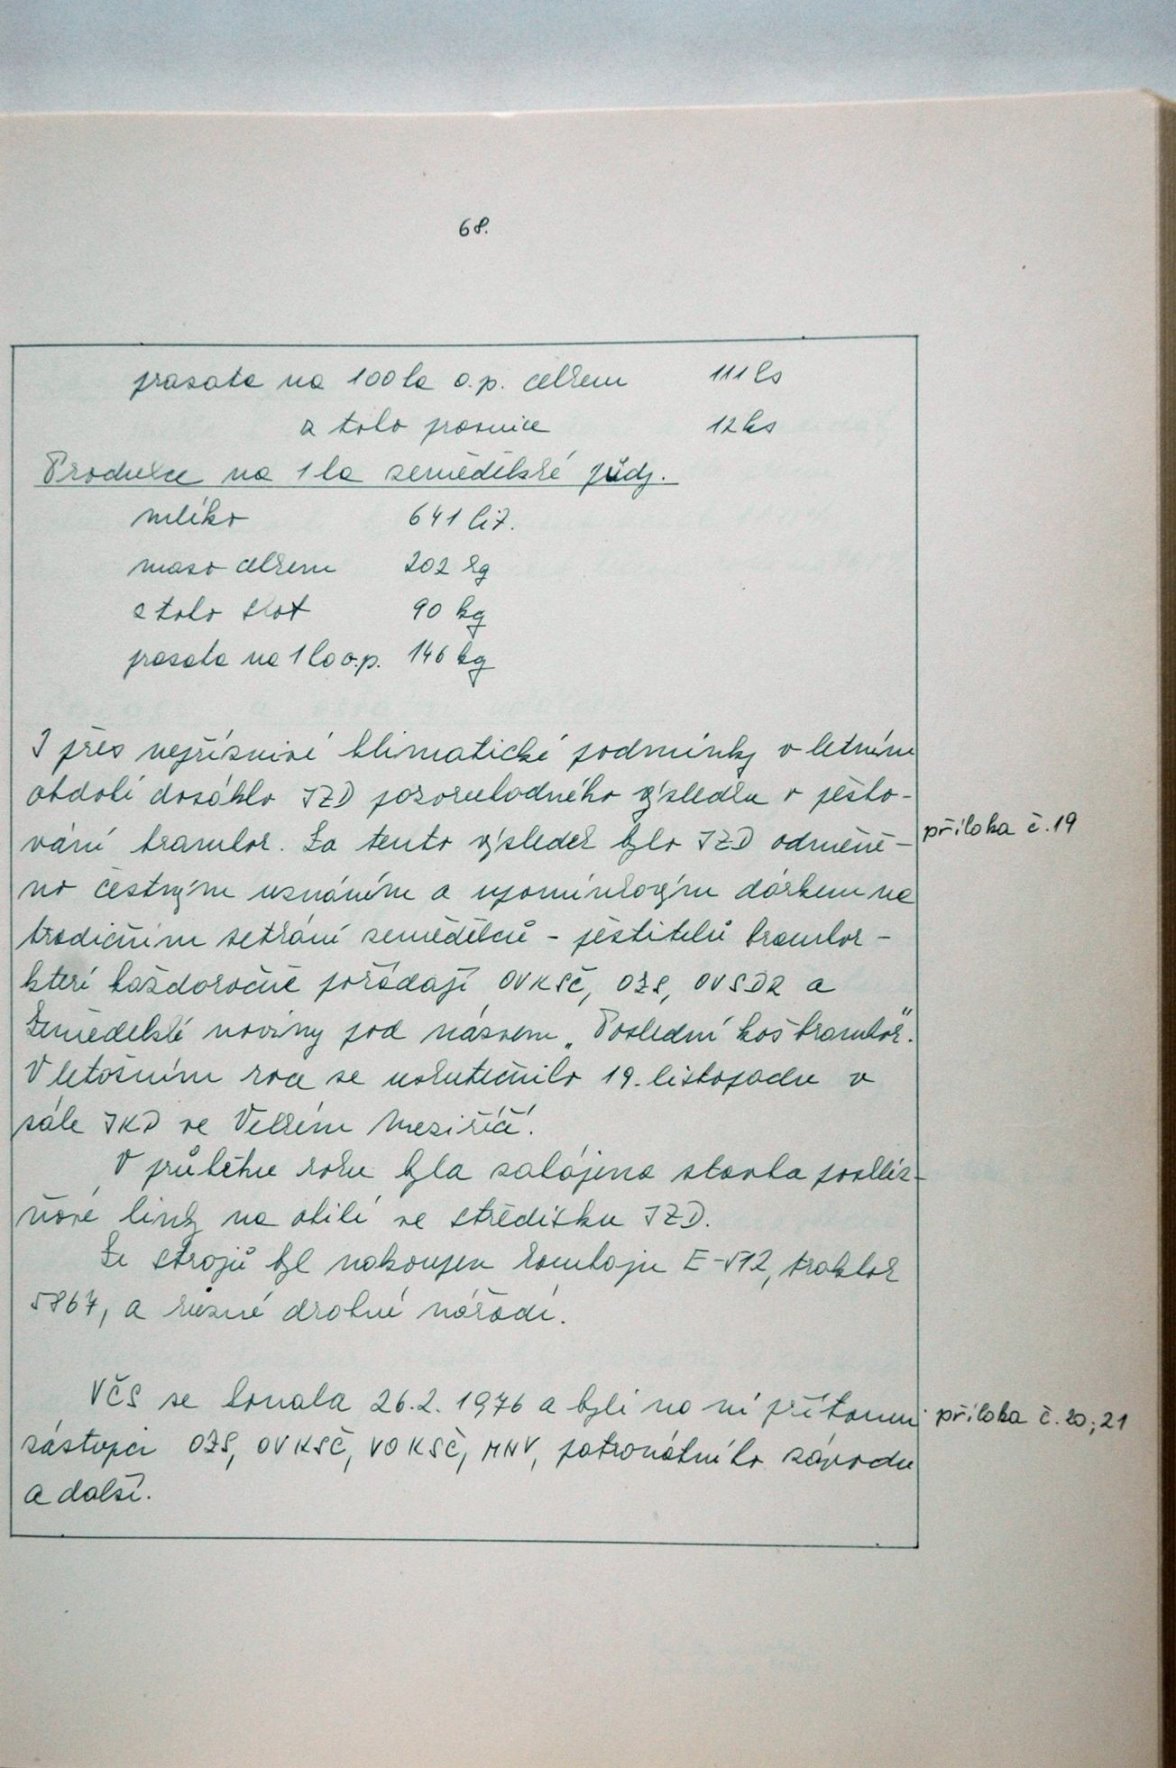 68.
prasata na 100 ha o.p. celkem 111 ks
z toho prasnice 12 ks
Produkce na 1 ha zemědělské půdy.
mléko 641 lit.
maso celkem 202 kg
z toho skot 90 kg
prasata na 1 ha o.p. 146 kg
I přes nepříznivé klimatické podmínky v letním
období dosáhlo JZD pozoruhodného výsledku v pěsto-
vání brambor. Za tento výsledek bylo JZD odměně-
příloha č. 19
no čestným uznáním a upomínkovým dárkem na
tradičním setkání zemědělců - pěstitelů brambor -
kteří každoročně pořádají OVKSČ, OZS, OVSDR a
Zemědělské noviny pod názvem „Poslední koš brambor".
V letošním roce se uskutečnilo 19. listopadu v
sále JKP ve Velkém Meziříčí.
V průběhu roku byla zahájena stavba poskliz-
ňové linky na obilí ve středisku JZD.
Ze strojů byl nakoupen kombajn E-512, traktor
5867, a různé drobné nářadí.
VČS se konala 26.2. 1976 a byli na ní přítomni
příloha č. 20; 21
zástupci OZS, OVKSČ, VOKSČ, MNV, patronátního závodu
a další.